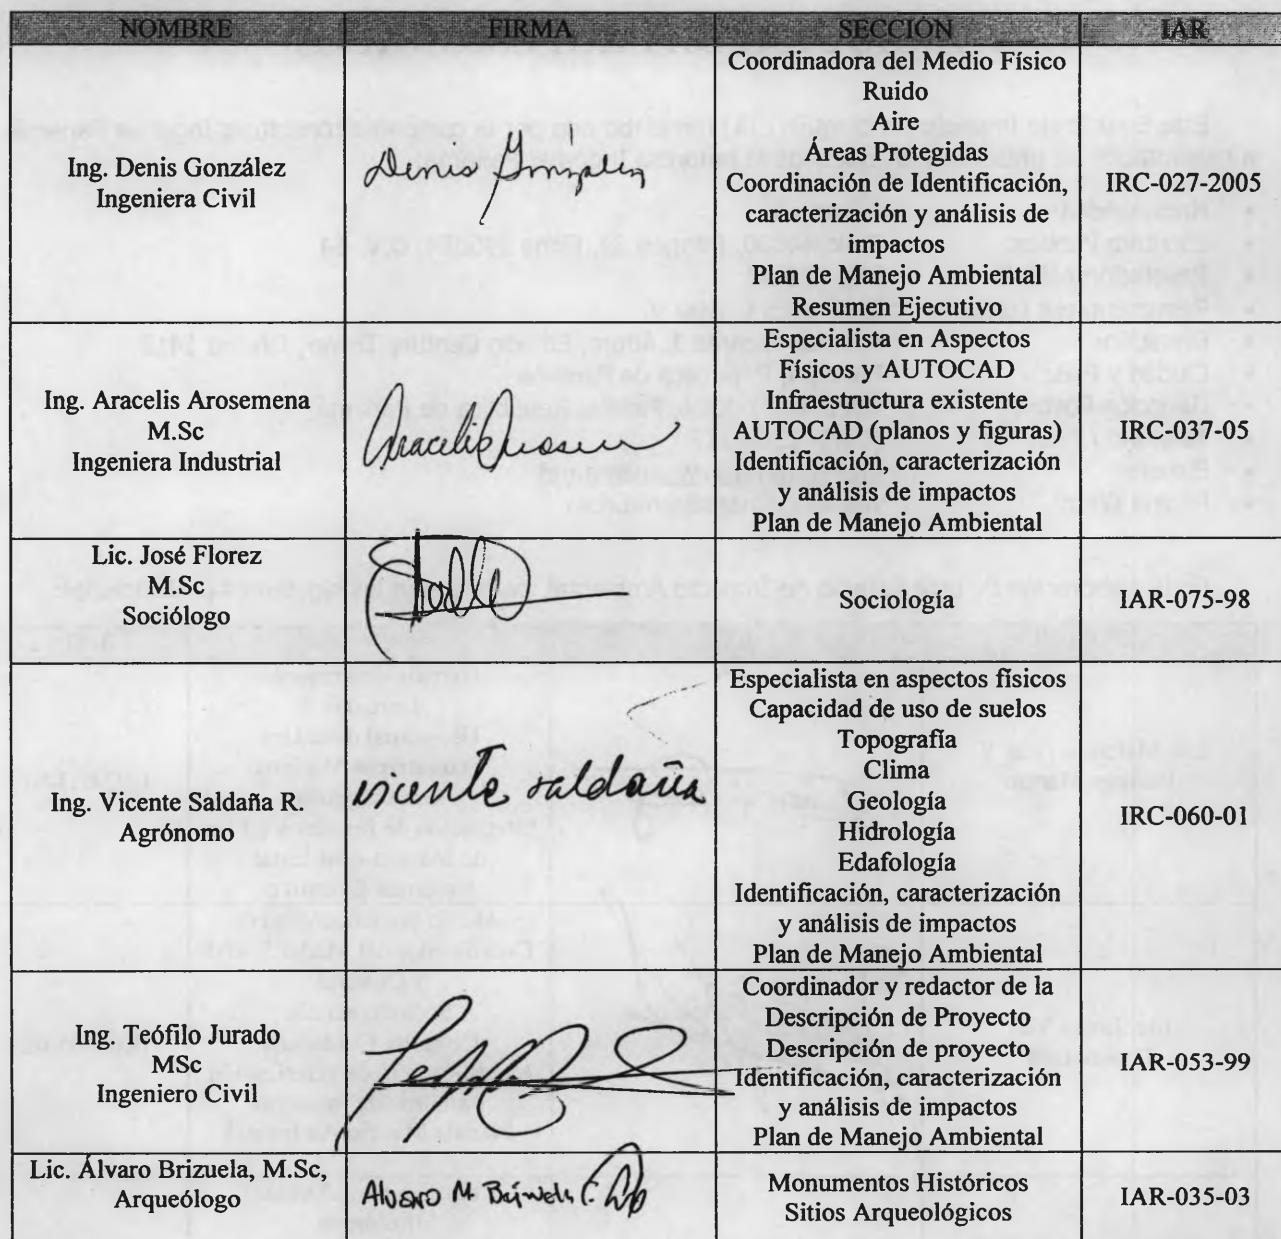 NOMBRE FIRMA SECCIÓN IAR
Ing. Denis González
Ingeniera Civil
Denis González
Coordinadora del Medio Físico
Ruido
Aire
Áreas Protegidas
Coordinación de Identificación,
caracterización y análisis de
impactos
Plan de Manejo Ambiental
Resumen Ejecutivo
IRC-027-2005
Ing. Aracelis Arosemena
M.Sc
Ingeniera Industrial
Especialista en Aspectos
Físicos y AUTOCAD
Infraestructura existente
AUTOCAD (planos y figuras)
Identificación, caracterización
y análisis de impactos
Plan de Manejo Ambiental
IRC-037-05
Lic. José Florez
M.Sc
Sociólogo
Sociología
IAR-075-98
Ing. Vicente Saldaña R.
Agrónomo
vicente saldaña
Especialista en aspectos físicos
Capacidad de uso de suelos
Topografía
Clima
Geología
Hidrología
Edafología
Identificación, caracterización
y análisis de impactos
Plan de Manejo Ambiental
IRC-060-01
Ing. Teófilo Jurado
MSc
Ingeniero Civil
Coordinador y redactor de la
Descripción de Proyecto
Descripción de proyecto
Identificación, caracterización
y análisis de impactos
Plan de Manejo Ambiental
IAR-053-99
Lic. Álvaro Brizuela, M.Sc,
Arqueólogo
Alvaro M. Brizuela C.
Monumentos Históricos
Sitios Arqueológicos
IAR-035-03